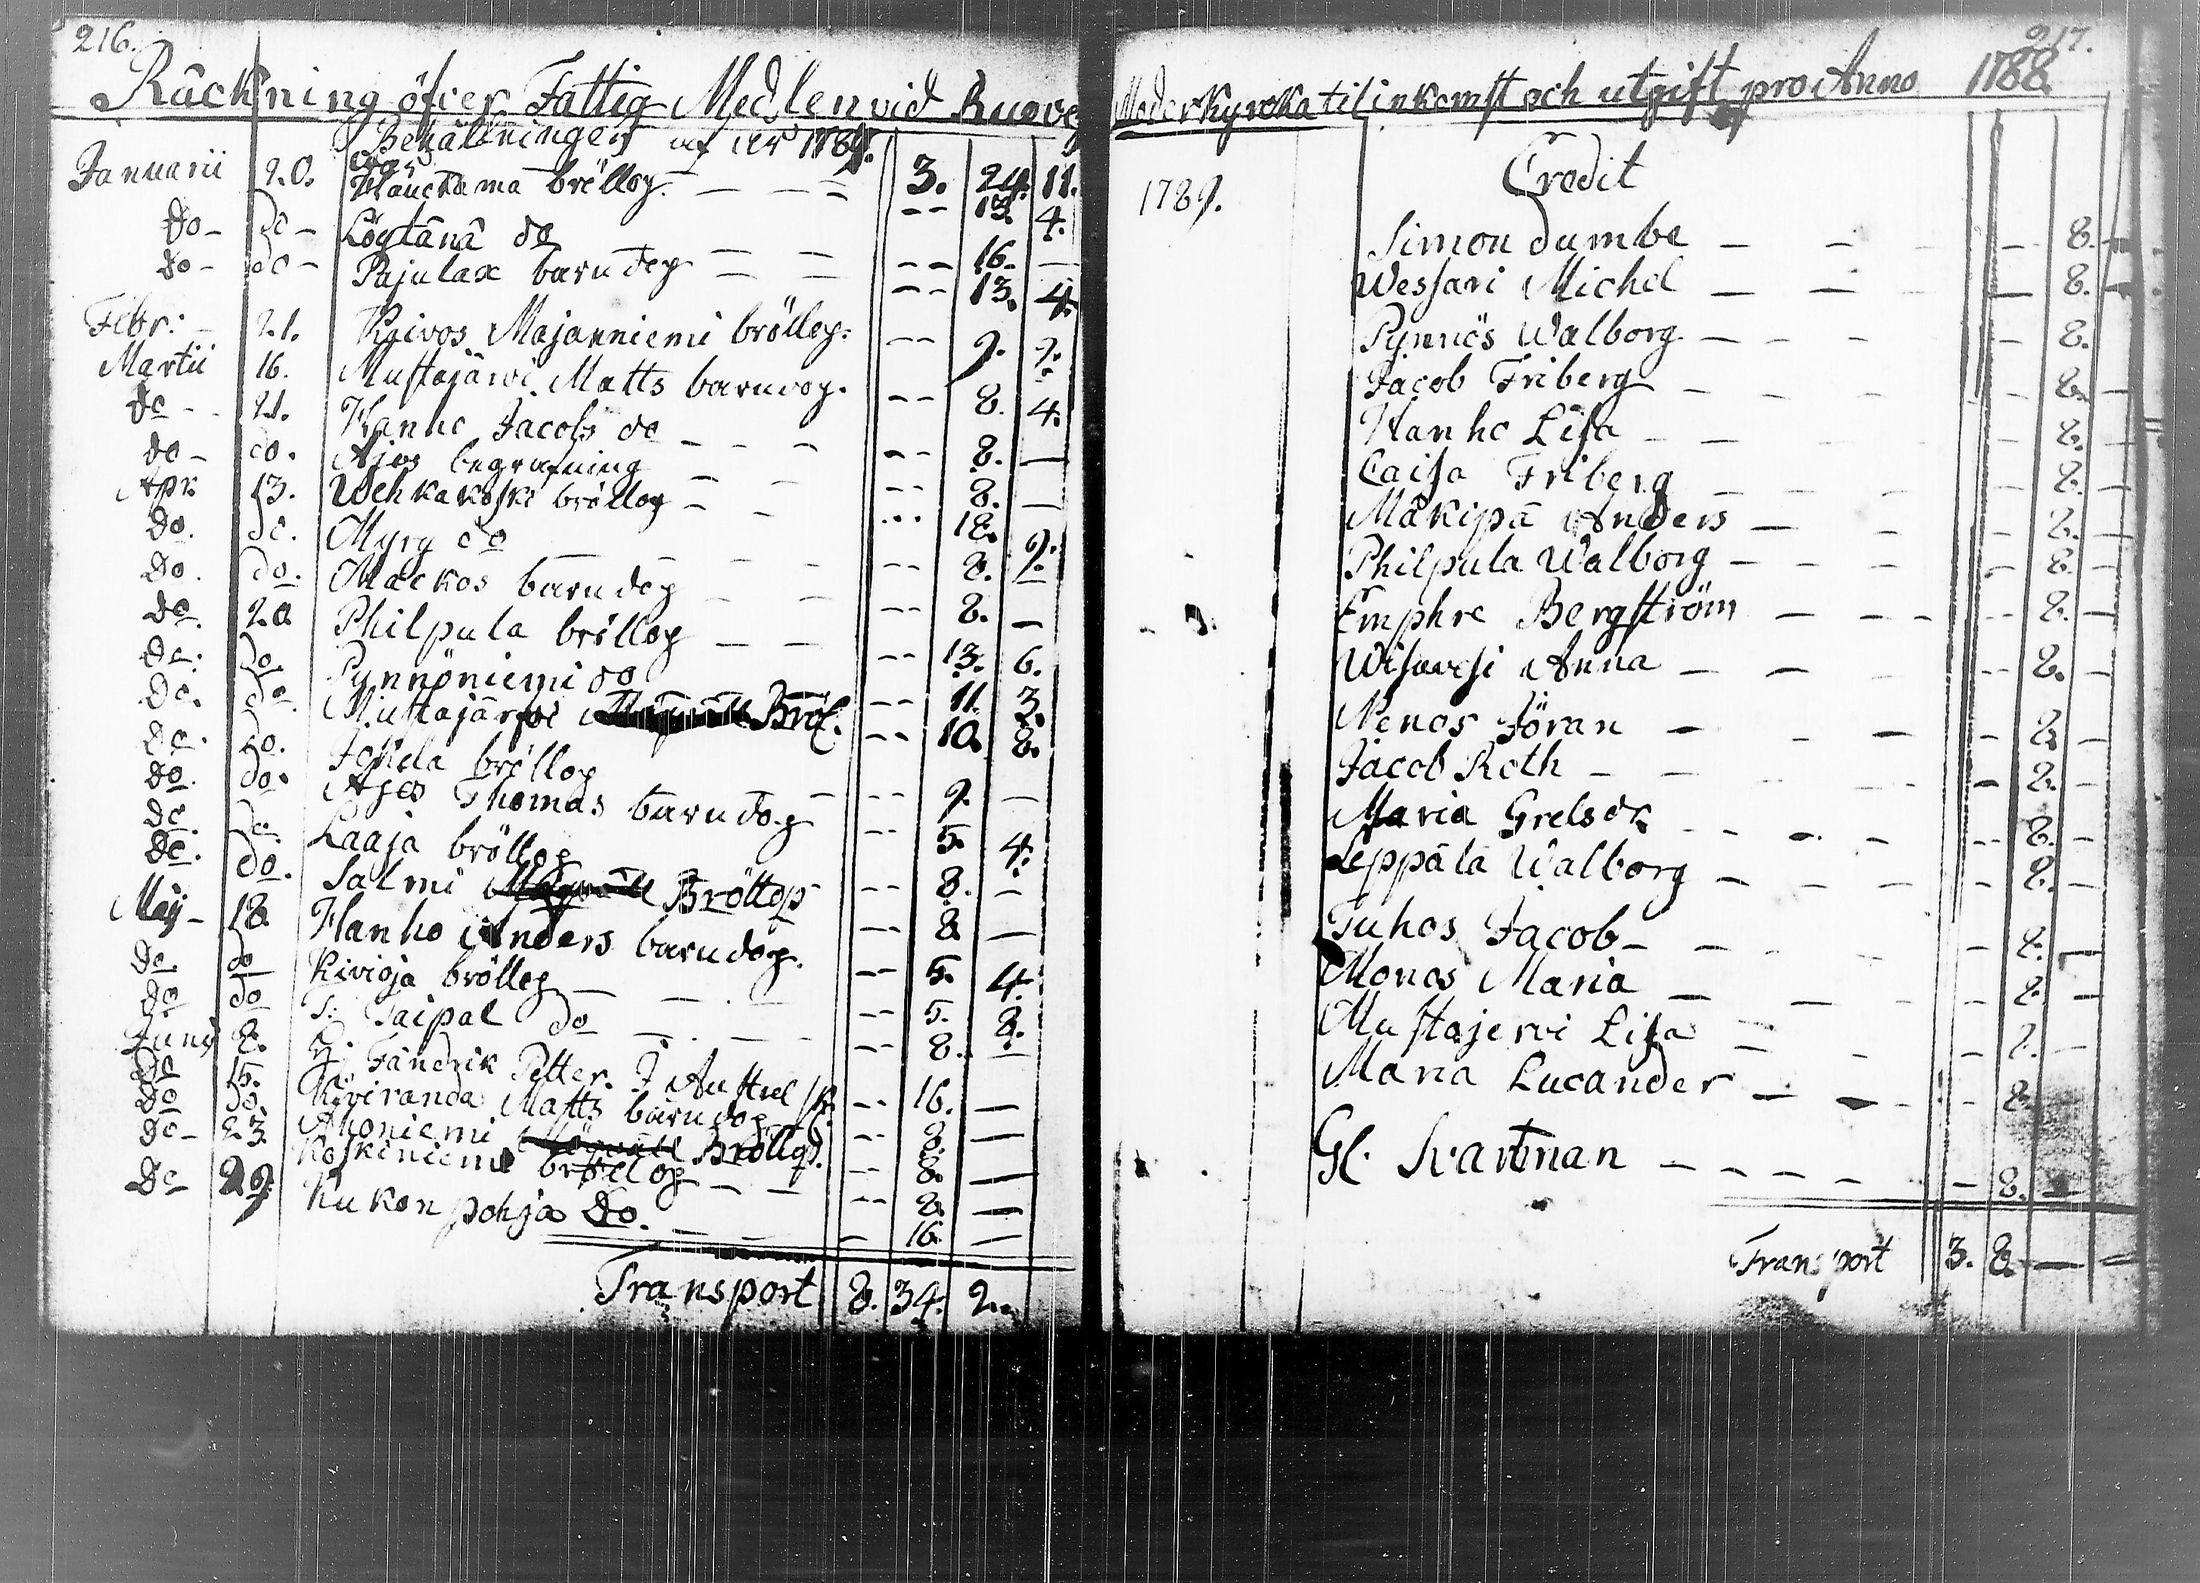 216.
Räckning öfver Fattig Medlen vid Ruove
Behållningen af År 1787. 3. 24. 11.
Januarii 20. bröllop. — — — -- 13. 4.
do — do — Löytänä do — — -- 16. —
do — do — Pajulax barndop — — -- 13. 4.
Febr: — 21. Kaivos Majanniemi bröllop: -- 9. 9.
Martii 16. Mustajärvi Matts barndop. -- 8. 4.
do — 21. Hanho Jacobs do — — — -- 8. —
do — do. Ajos begrafning — — -- 8. —
Apr. 13. Wehkakoski bröllop — — ... 18. 9.
do. do. Myry do — — — -- 8. 9.
do. do. Mackos barndop — — -- 8. —
do. 20 Philpula bröllop — — -- 13. 6.
do. do. Pynnöniemi do -- 11. 3.
do. do. Mustajärfvi Bröl. -- 10. 8.
do. do. Jokela bröllop — -- 9. —
do. do. Ajos Thomas barndop -- 5. 4.
do. do. Laaja bröllop -- 8. —
do. do. Salmi Bröllop -- 8 —
Maij — 18. Hanho Anders barndop. -- 5. 4.
do do Kivioja bröllop — — — -- 5. 8.
do do Taipal do — — — -- 8. —
Junij 8. Fändrik Petter. J -- 16. —
do 15. Kiviranda Matts barndop -- 8. —
do do. Ahoniemi Bröllop. -- 8. —
do — 23. Koskeniemi bröllop — — -- 8. —
do 29. Kukonpohja do. — — — 16. —
Transport 8. 34. 2.
217.
Moderkyrcka til inkomst och utgift pro Anno 1788.
Credit
1789.
Simon dumbe — — — -- 8. —
Wessari Michel — — — — 8. —
Pynnös Walborg — — — 8.
Jacob Friberg — — — — 8.
Hanho Lisa — — — 8.
Caisa Friberg — — — 8.
Mäkipä Anders — — — 8. —
Philpula Walborg — — — 8. —
Emphre Bergström — — — 8. —
Wisavesi Anna — — — -- 8. —
Nenos Jöran — — — 8. —
Jacob Roth — — — — 8. —
Maria Grelsdr — — — 8. —
Leppälä Walborg — — — 8. —
Tuhos Jacob — — — — 8. —
Monos Maria — — — 8. —
Mustajervi Lisa — — — 8. —
Maria Lucander — — — 8.
Gl. Svartman — — — — — 8. —
Transport 3. 8. — —